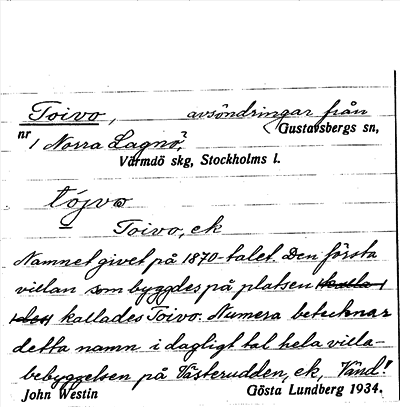 Toivo, avsöndringar från
nr 1 Norra Lagnö, Gustavsbergs sn,
Värmdö skg, Stockholms l.
tójvω
Toivo, ek
Namnet givet på 1870-talet. Den första
villan som byggdes på platsen kalla-
des kallades Toivo. Numera betecknar
detta namn i dagligt tal hela villa-
bebyggelsen på Västerudden, ek, Vänd!
John Westin Gösta Lundberg 1934.